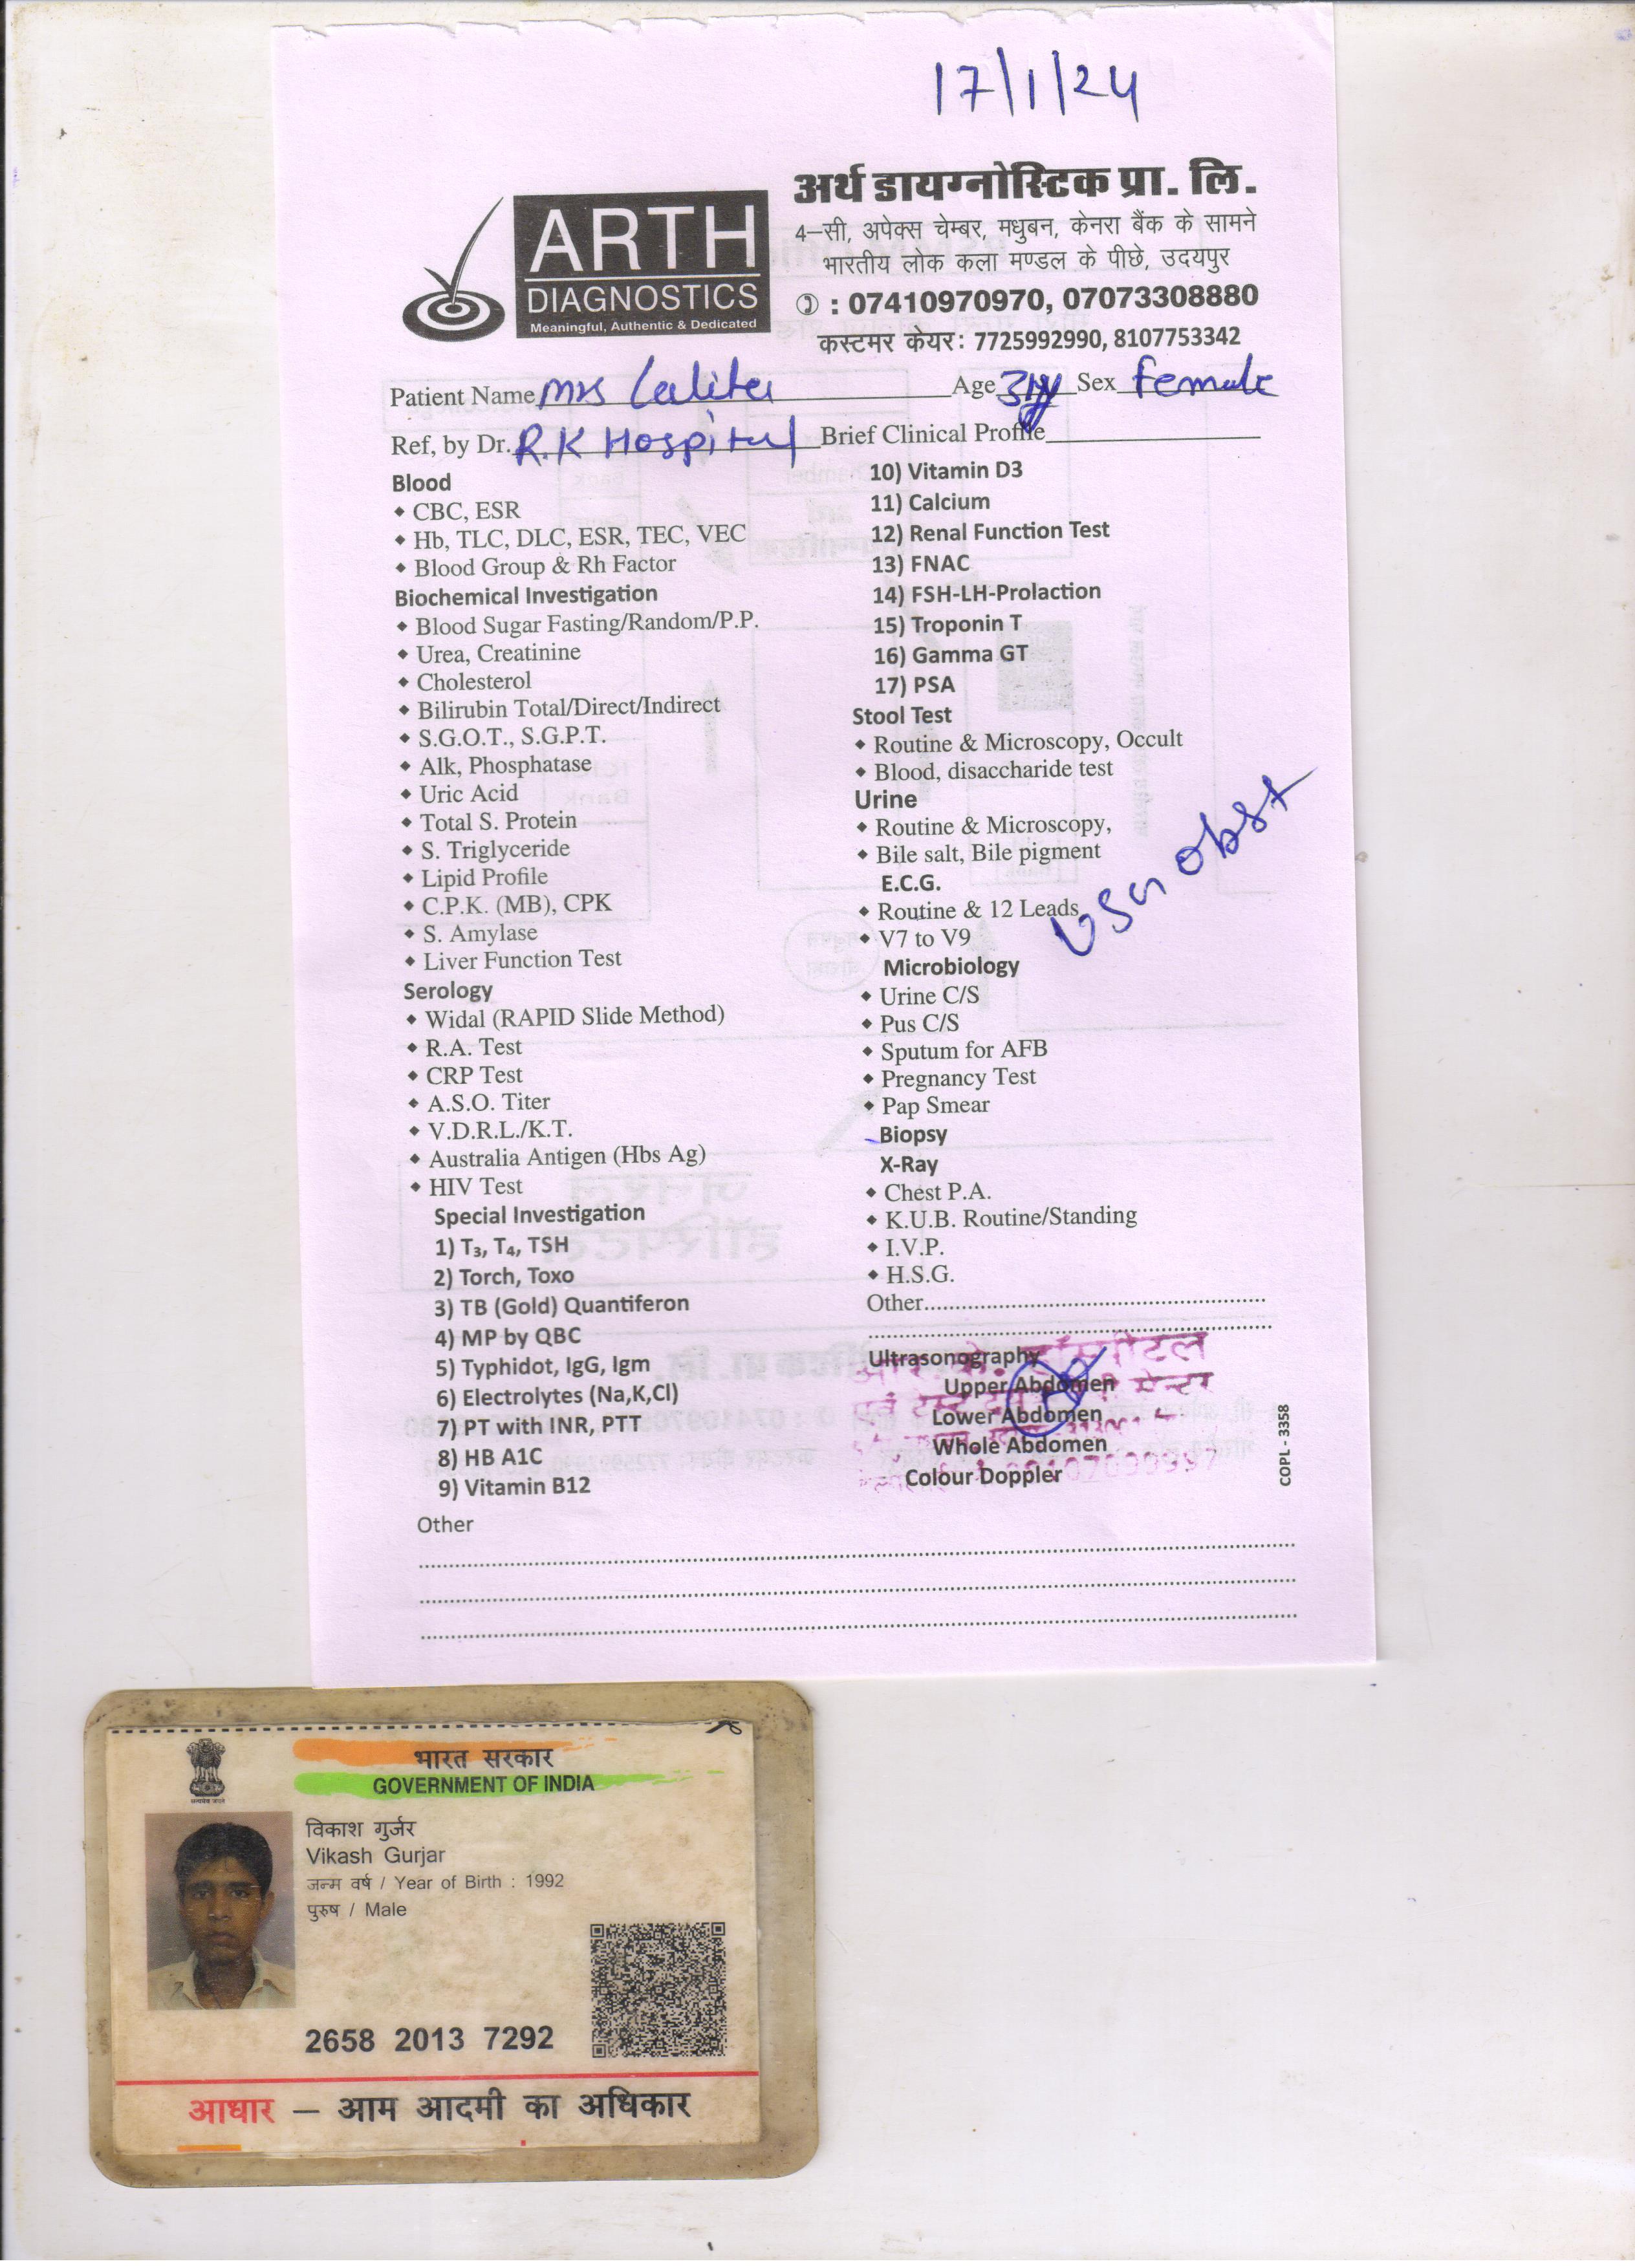 17/1/24
ARTH
DIAGNOSTICS
Meaningful, Authentic & Dedicated
अर्थ डायग्नोस्टिक प्रा. लि.
4–सी, अपेक्स चेम्बर, मधुबन, केनरा बैंक के सामने
भारतीय लोक कला मण्डल के पीछे, उदयपुर
: 07410970970, 07073308880
कस्टमर केयर: 7725992990, 8107753342
Patient Name Mrs Lalita Age 31y Sex Female
Ref, by Dr. R.K Hospital Brief Clinical Profile
Blood
CBC, ESR
Hb, TLC, DLC, ESR, TEC, VEC
Blood Group & Rh Factor
Biochemical Investigation
Blood Sugar Fasting/Random/P.P.
Urea, Creatinine
Cholesterol
Bilirubin Total/Direct/Indirect
S.G.O.T., S.G.P.T.
Alk, Phosphatase
Uric Acid
Total S. Protein
S. Triglyceride
Lipid Profile
C.P.K. (MB), CPK
S. Amylase
Liver Function Test
Serology
Widal (RAPID Slide Method)
R.A. Test
CRP Test
A.S.O. Titer
V.D.R.L./K.T.
Australia Antigen (Hbs Ag)
HIV Test
Special Investigation
1) T₃, T₄, TSH
2) Torch, Toxo
3) TB (Gold) Quantiferon
4) MP by QBC
5) Typhidot, IgG, Igm
6) Electrolytes (Na,K,Cl)
7) PT with INR, PTT
8) HB A1C
9) Vitamin B12
10) Vitamin D3
11) Calcium
12) Renal Function Test
13) FNAC
14) FSH-LH-Prolaction
15) Troponin T
16) Gamma GT
17) PSA
Stool Test
Routine & Microscopy, Occult
Blood, disaccharide test
Urine
Routine & Microscopy,
Bile salt, Bile pigment
E.C.G.
Routine & 12 Leads
V7 to V9
USG obst
Microbiology
Urine C/S
Pus C/S
Sputum for AFB
Pregnancy Test
Pap Smear
Biopsy
X-Ray
Chest P.A.
K.U.B. Routine/Standing
I.V.P.
H.S.G.
Other
Ultrasonography
Upper Abdomen
Lower Abdomen
Whole Abdomen
Colour Doppler
आर. के. हॉस्पीटल
COPL - 3358
Other
भारत सरकार
GOVERNMENT OF INDIA
विकाश गुर्जर
Vikash Gurjar
जन्म वर्ष / Year of Birth : 1992
पुरुष / Male
2658 2013 7292
आधार – आम आदमी का अधिकार